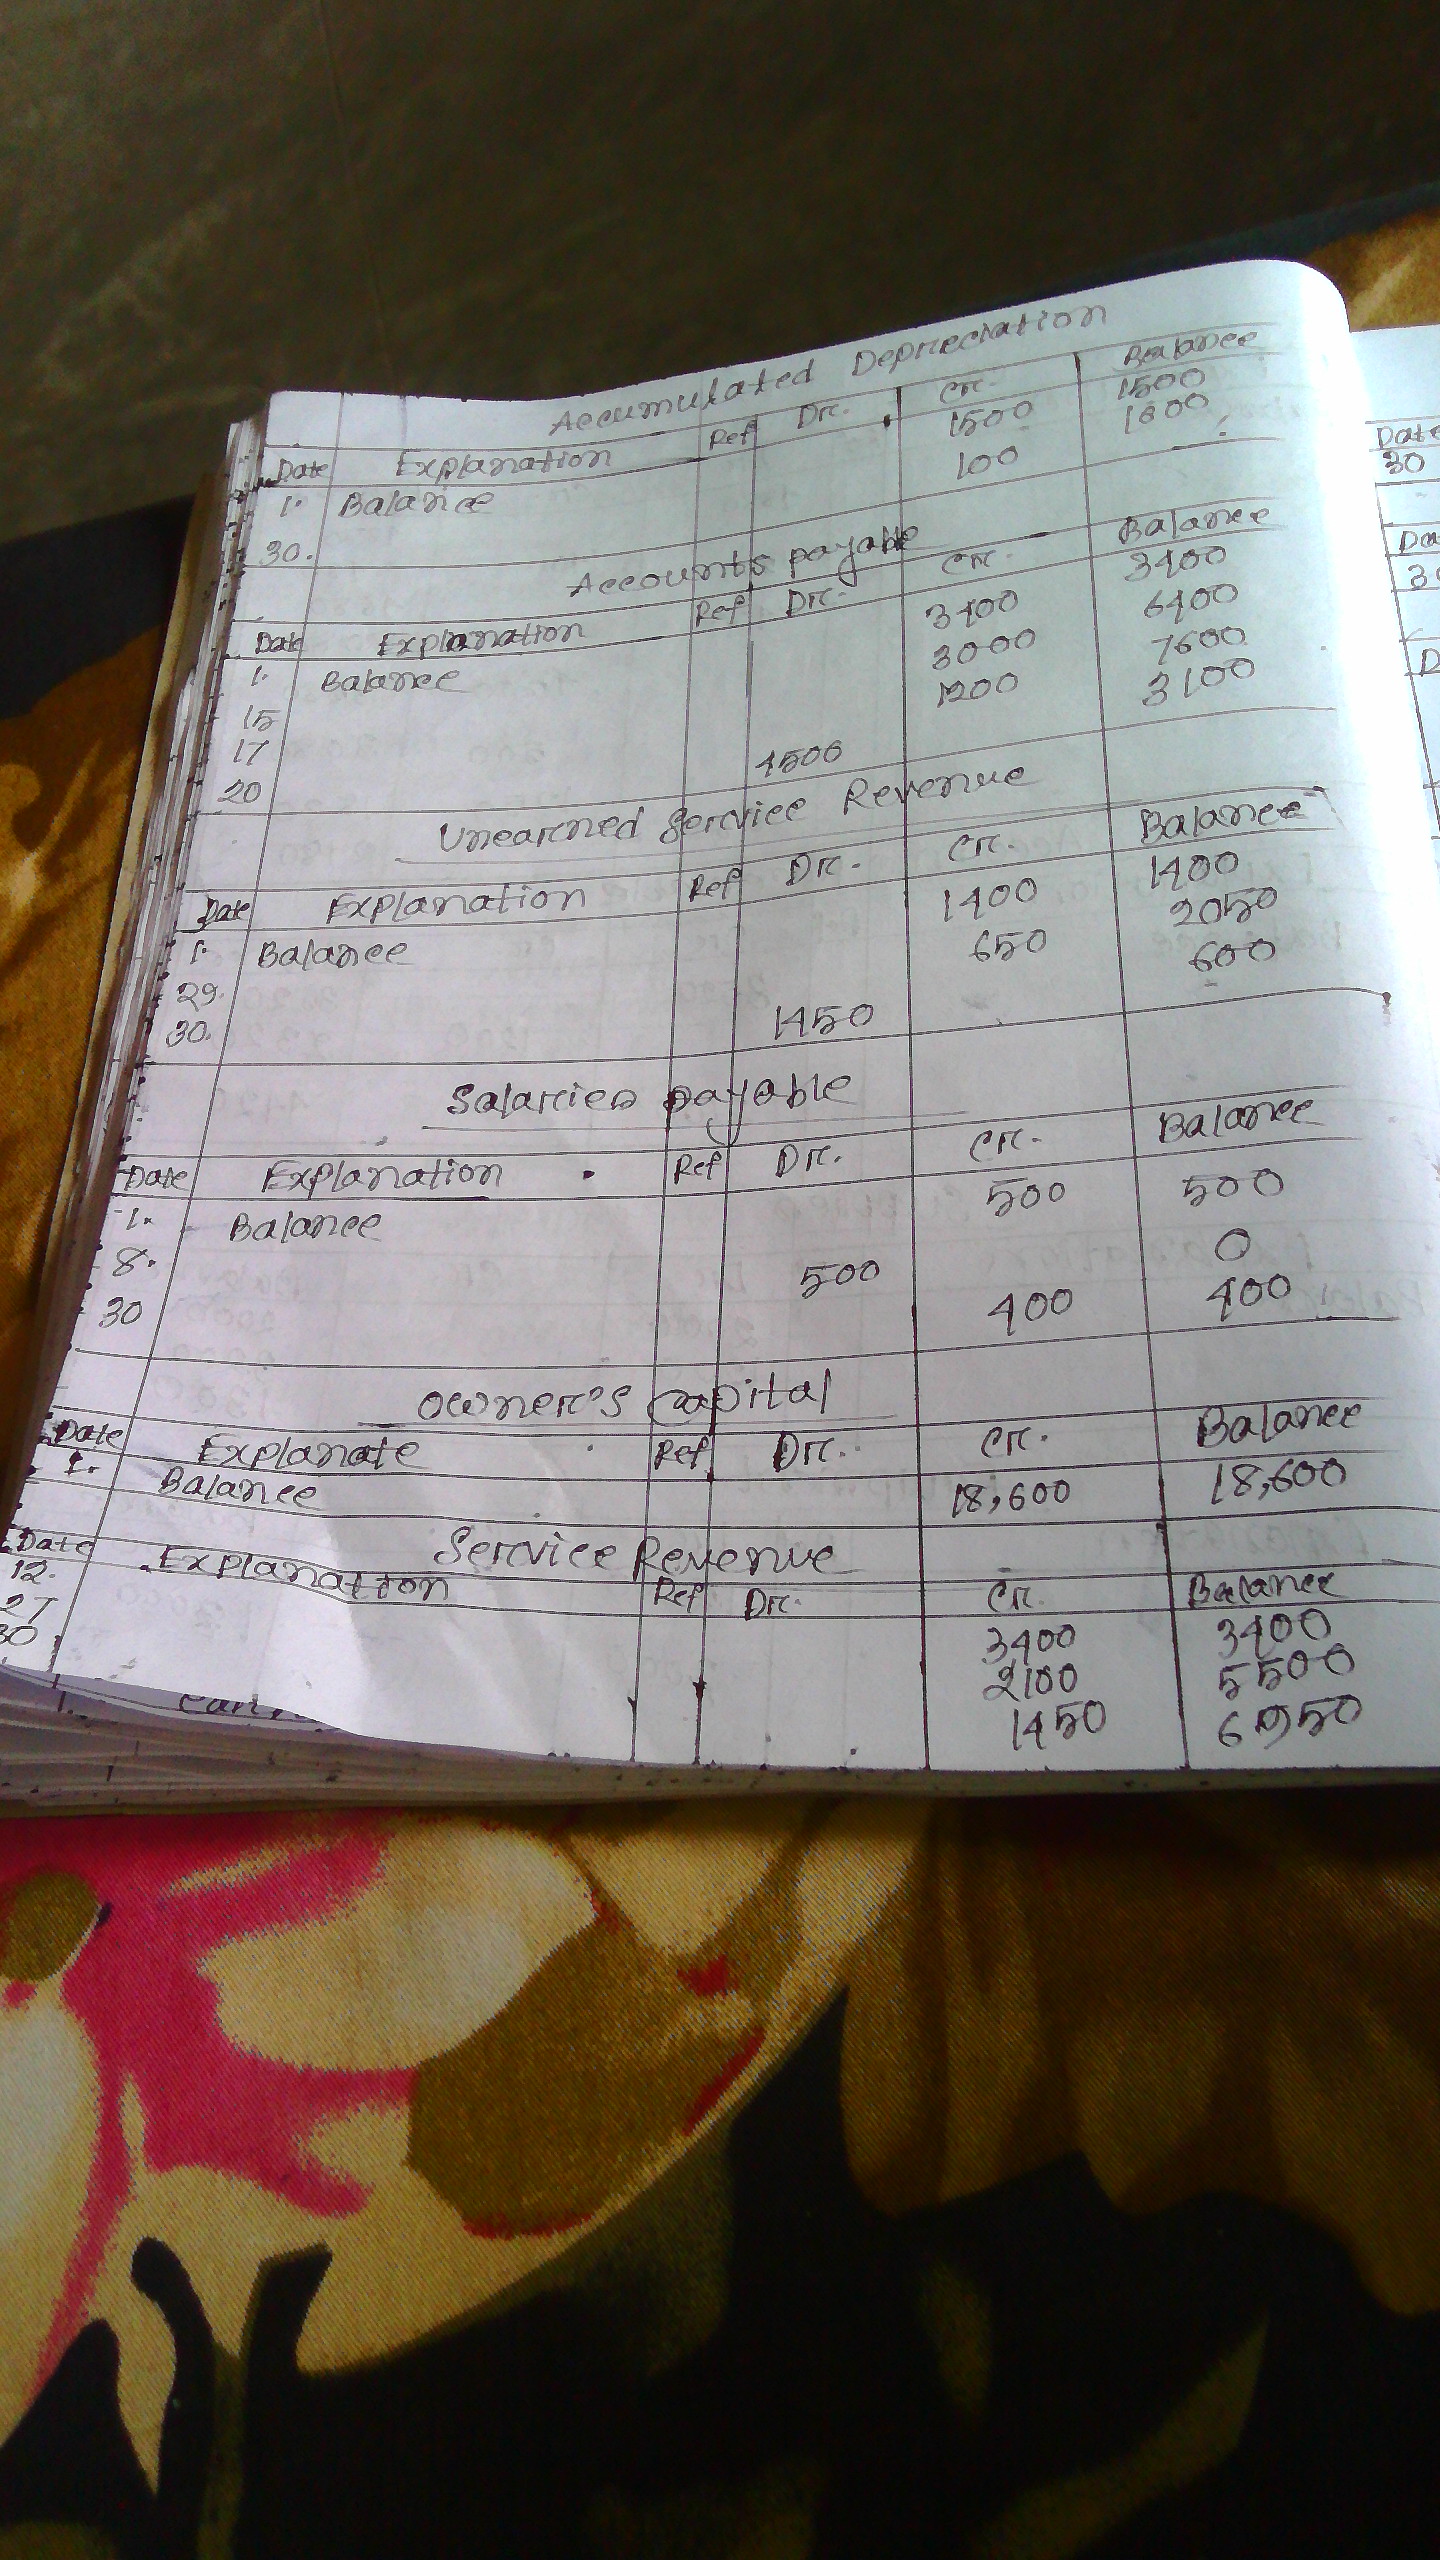 Accumulated Depreciation
Date Explanation Ref Dr. Cr. Balance
1. Balance 1500 1500
30. 100 1600
Accounts payable
Date Explanation Ref Dr. Cr. Balance
1. Balance 3400 3400
15 3000 6400
17 1200 7600
20 4500 3100
Unearned Service Revenue
Date Explanation Ref Dr. Cr. Balance
1. Balance 1400 1400
29. 650 2050
30. 1450 600
Salaries payable
Date Explanation Ref Dr. Cr. Balance
1. Balance 500 500
8. 500 0
30 400 400
Owner's Capital
Date Explanate Ref Dr. Cr. Balance
1. Balance 18,600 18,600
Service Revenue
Date Explanation Ref Dr. Cr. Balance
12. 3400 3400
27 2100 5500
30 1450 6950
Date
30